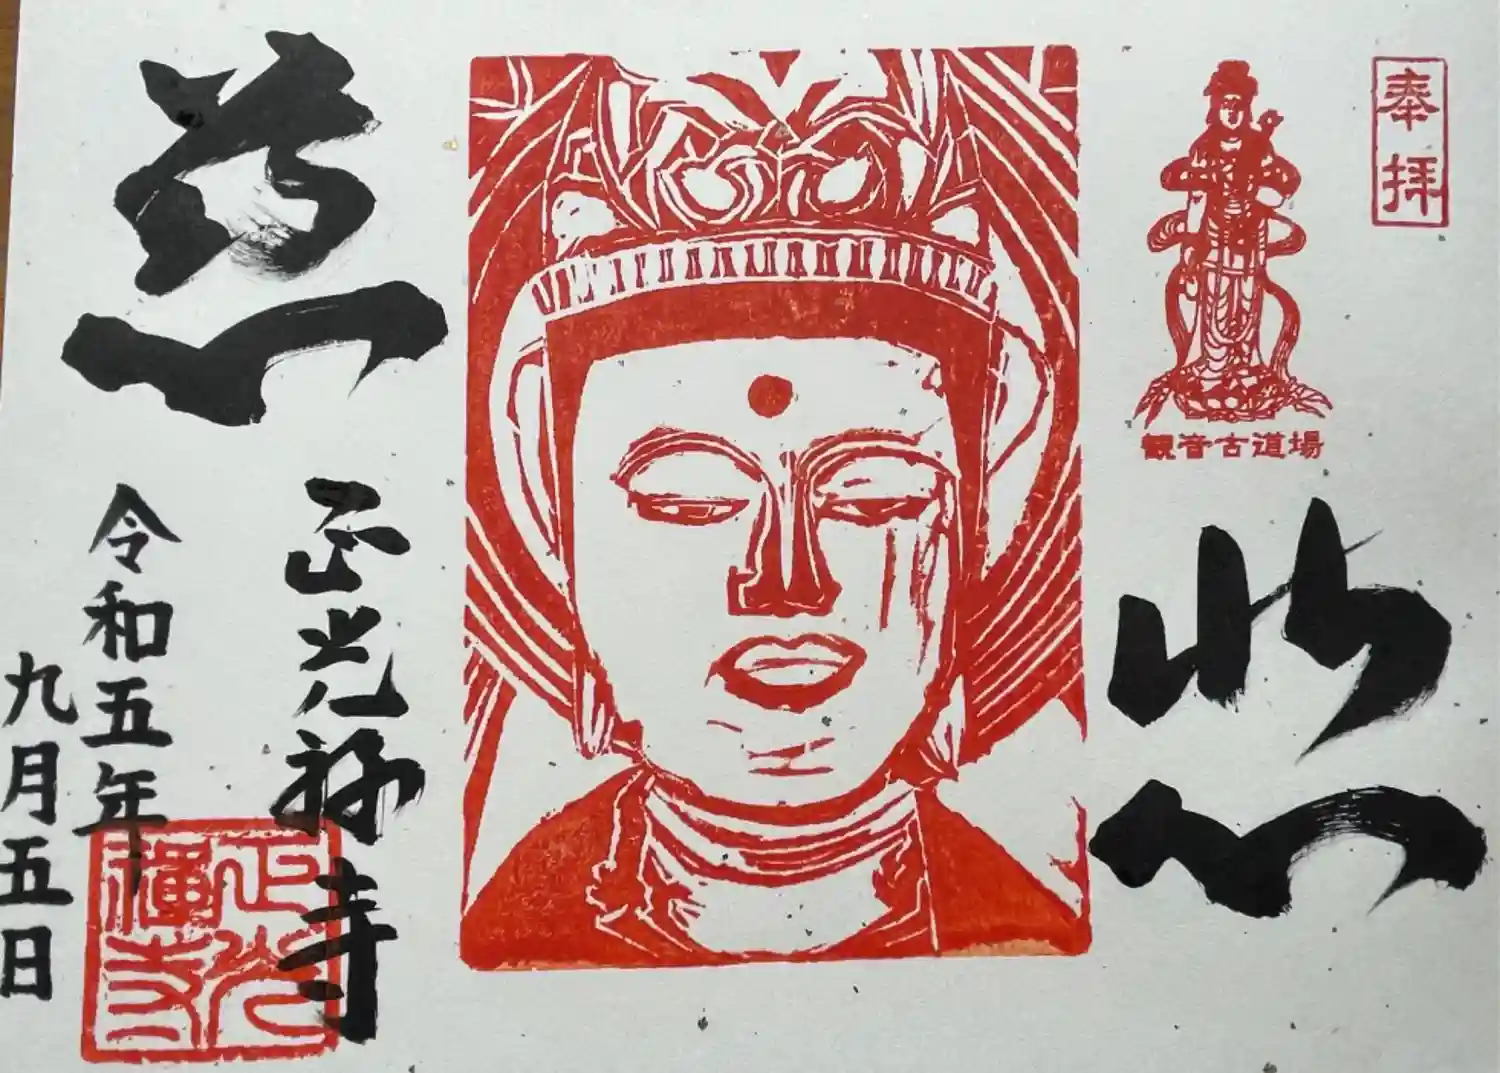 奉拝
観音古道場
悲
慈
正光禅寺
令和五年
九月五日
正光
禪寺